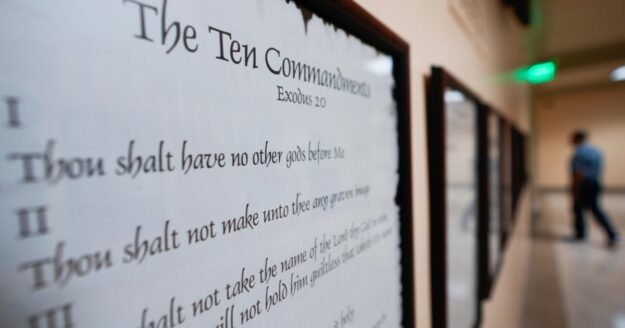 The Ten Commandments
Exodus 20
I
Thou shalt have no other gods before Me
II
Thou shalt not make unto thee any graven image
III
shalt not take the name of the Lord thy God in vain
will not hold him guiltless that taketh
holy